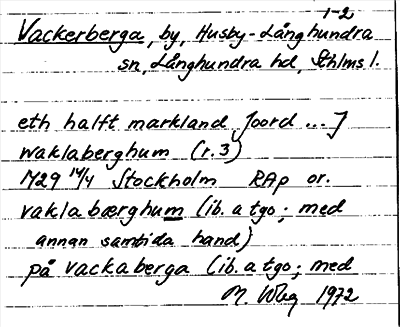 1-2
Vackerberga, by, Husby-Långhundra
sn, Långhundra hd, Sthlms l.
eth halft markland [jord ...]
waklaberghum (r. 3)
1429 14/4 Stockholm RAp or.
vakla bærghum (ib. a tgo; med
annan samtida hand)
på vackaberga (ib. a tgo; med
M. 1972